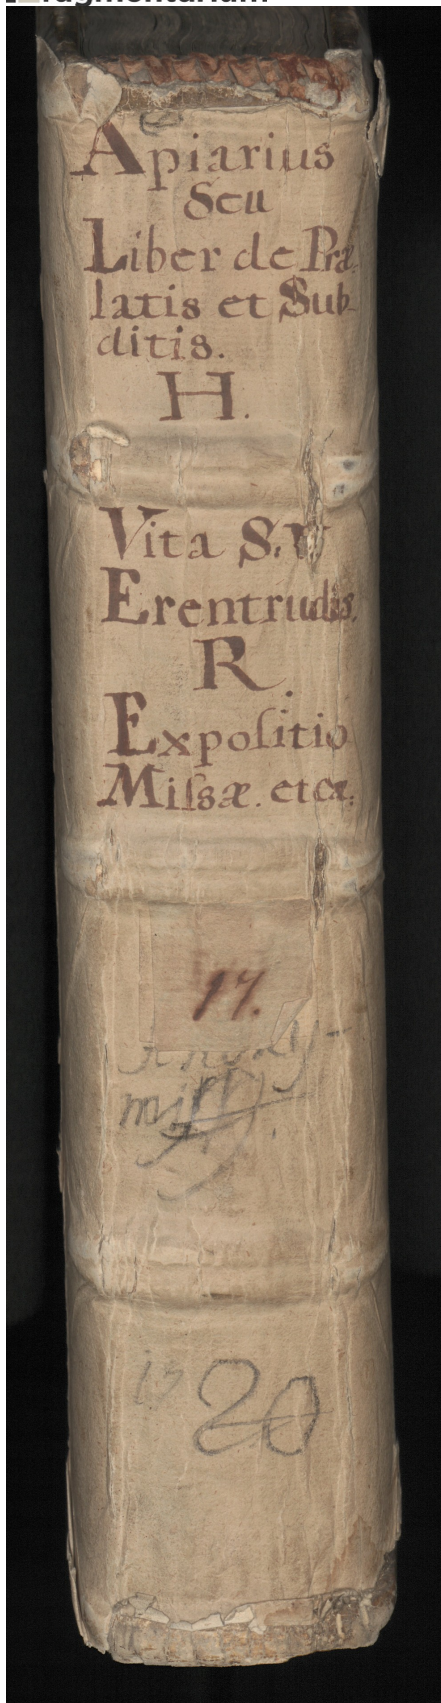 Apiarius
Seu
Liber de Præ-
latis et Sub-
ditis.
H.
Vita S. V
Erentrudis.
R
Expoſitio
Miſsæ. etca.
17.
20